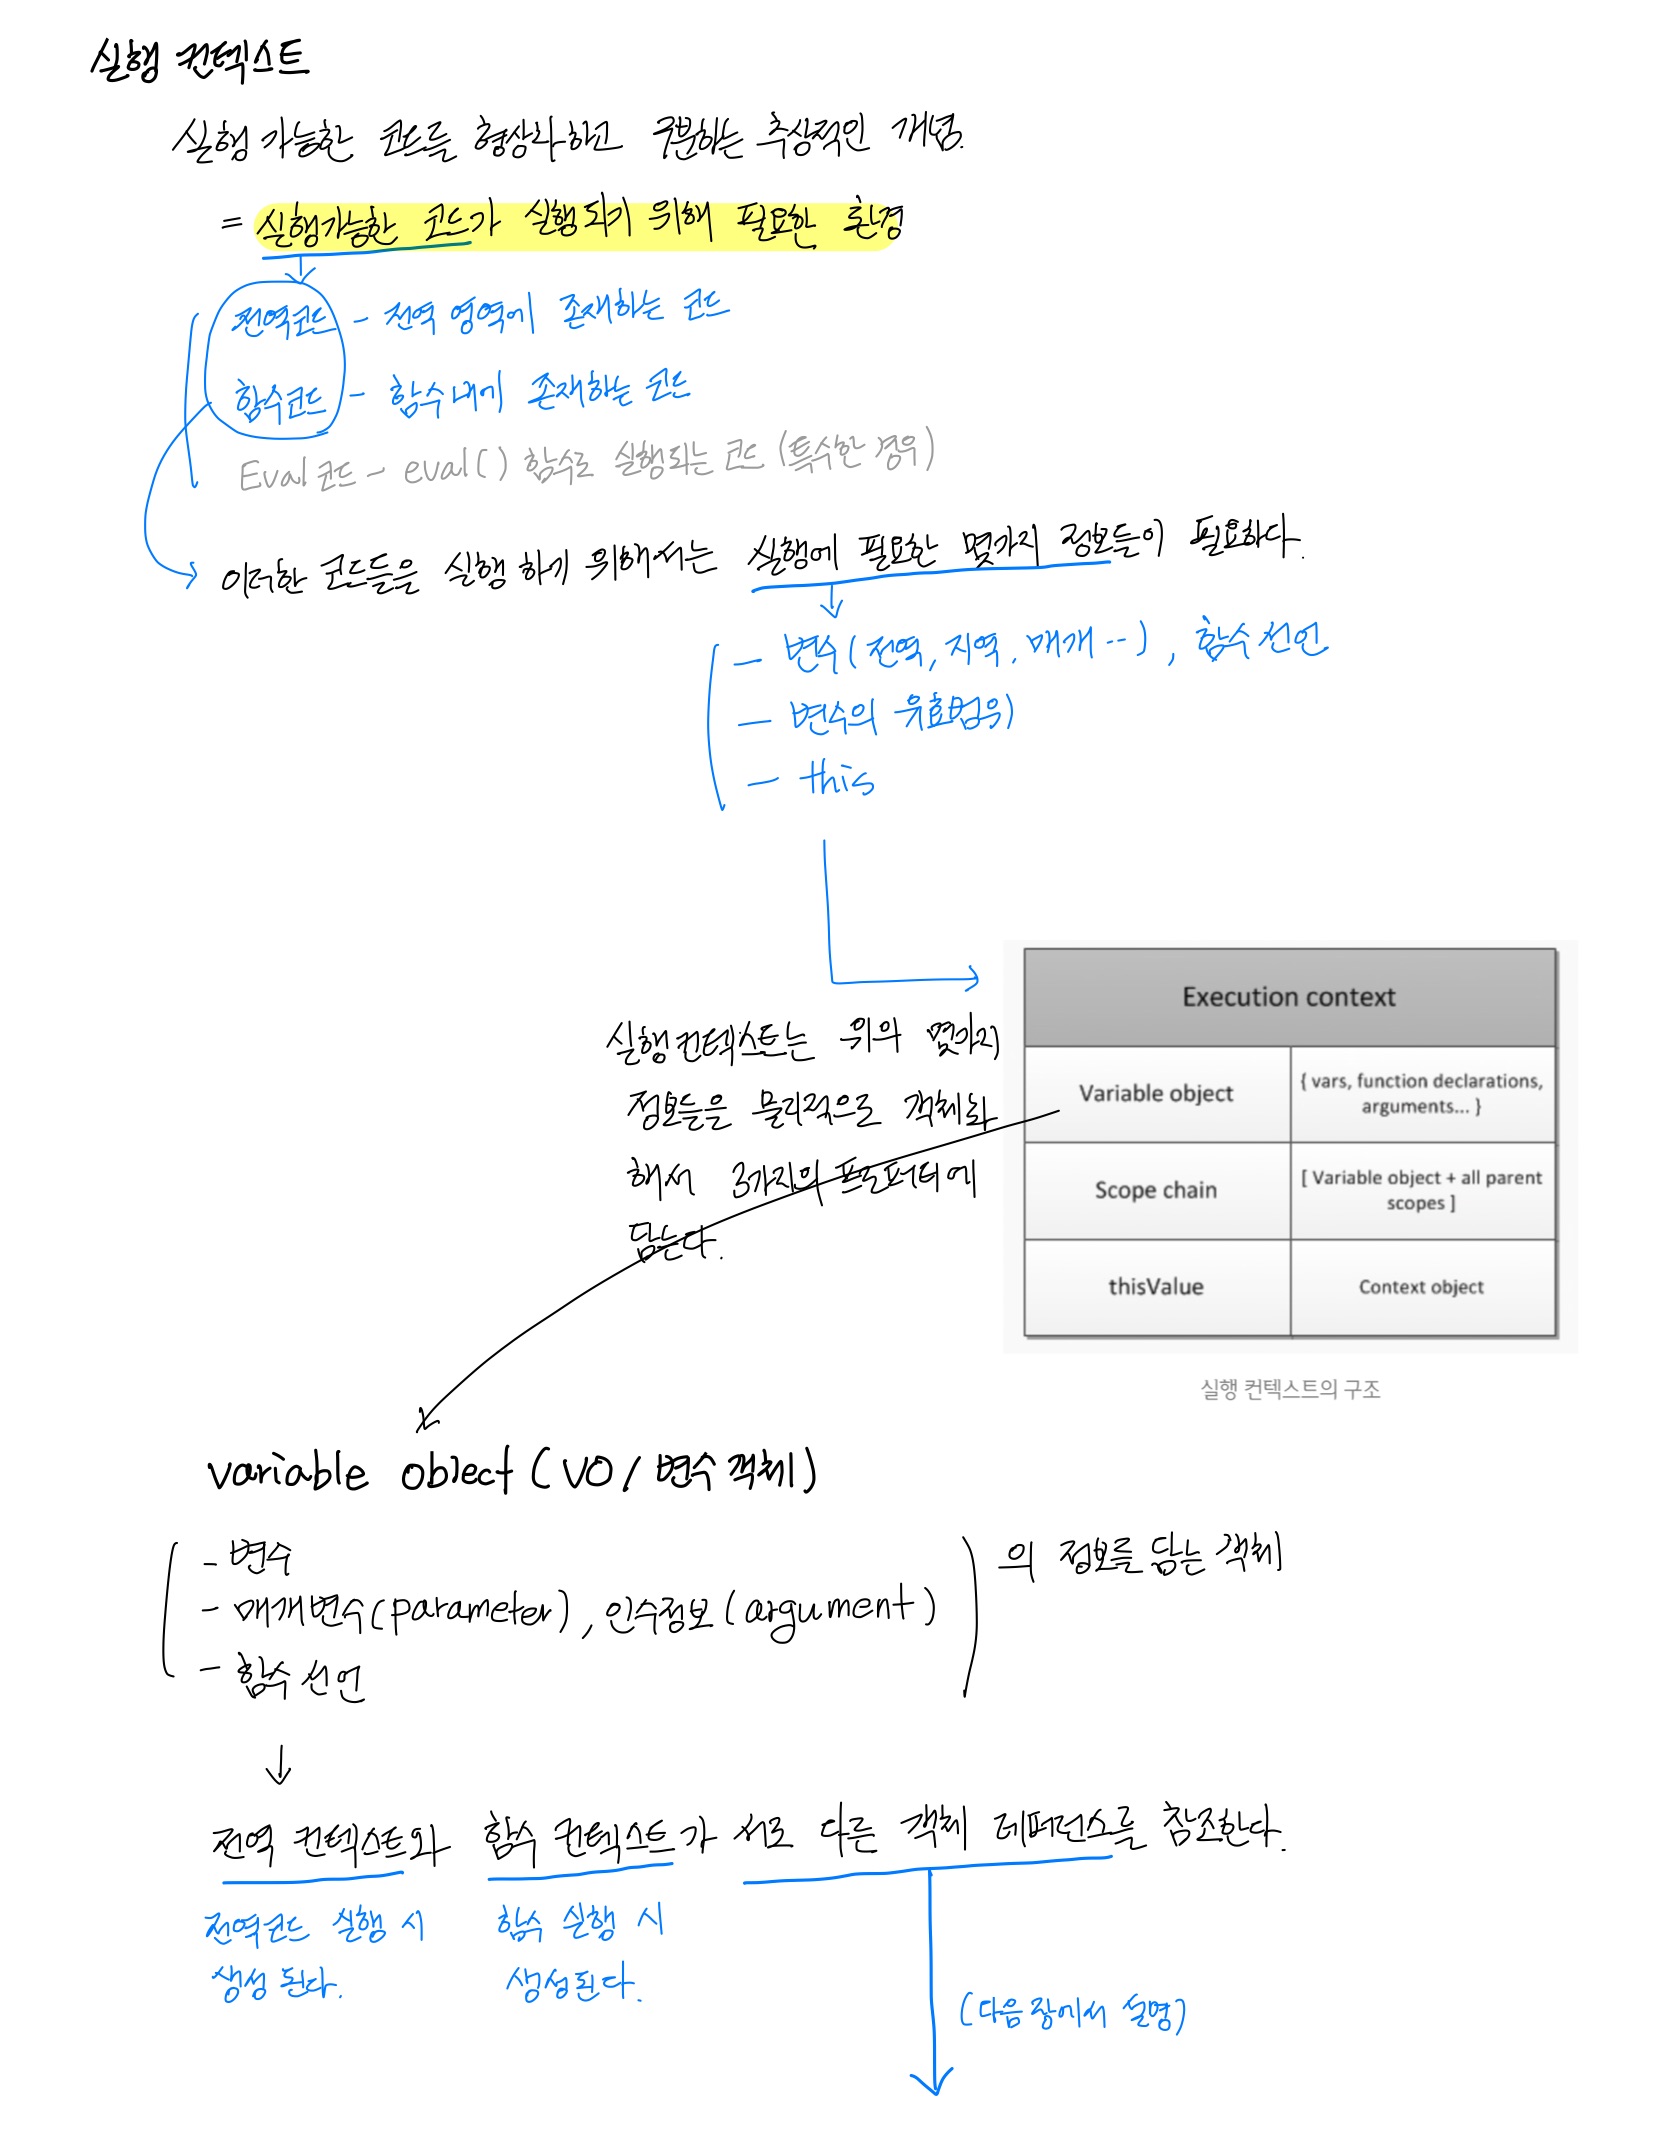 실행 컨텍스트
실행 가능한 코드를 형상화하고 구분하는 추상적인 개념.
= 실행가능한 코드가 실행되기 위해 필요한 환경
전역코드 - 전역 영역에 존재하는 코드
함수코드 - 함수 내에 존재하는 코드
Eval 코드 - eval() 함수로 실행되는 코드 (특수한 경우)
이러한 코드들을 실행 하기 위해서는 실행에 필요한 몇가지 정보들이 필요하다.
- 변수(전역, 지역, 매개 ..), 함수 선언
- 변수의 유효범위)
- this
실행컨텍스트는 위의 몇가지
정보들을 물리적으로 객체화
해서 3가지의 프로퍼티에
담는다.
Execution context
Variable object { vars, function declarations, arguments... }
Scope chain [ Variable object + all parent scopes ]
thisValue Context object
실행 컨텍스트의 구조
variable object (VO / 변수 객체)
- 변수
- 매개변수(parameter), 인수정보(argument)
- 함수 선언
의 정보를 담는 객체
↓
전역 컨텍스트와 함수 컨텍스트가 서로 다른 객체 레퍼런스를 참조한다.
전역코드 실행 시
생성 된다.
함수 실행 시
생성된다.
(다음 장에서 설명)